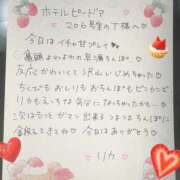 ホテルピードア
206号室の丁様へ
今日はイチャ甘プレイ
亀頭よわよわの早漏ちんぽ
反応かわいくて沢山いじめちゃった
ちくびもおしりもおちんぽもビンカンで
リカもえっちな気分になっちゃったから
次はもっとガマン出来るつよつよちんぽに
今日はありがとう
リカ